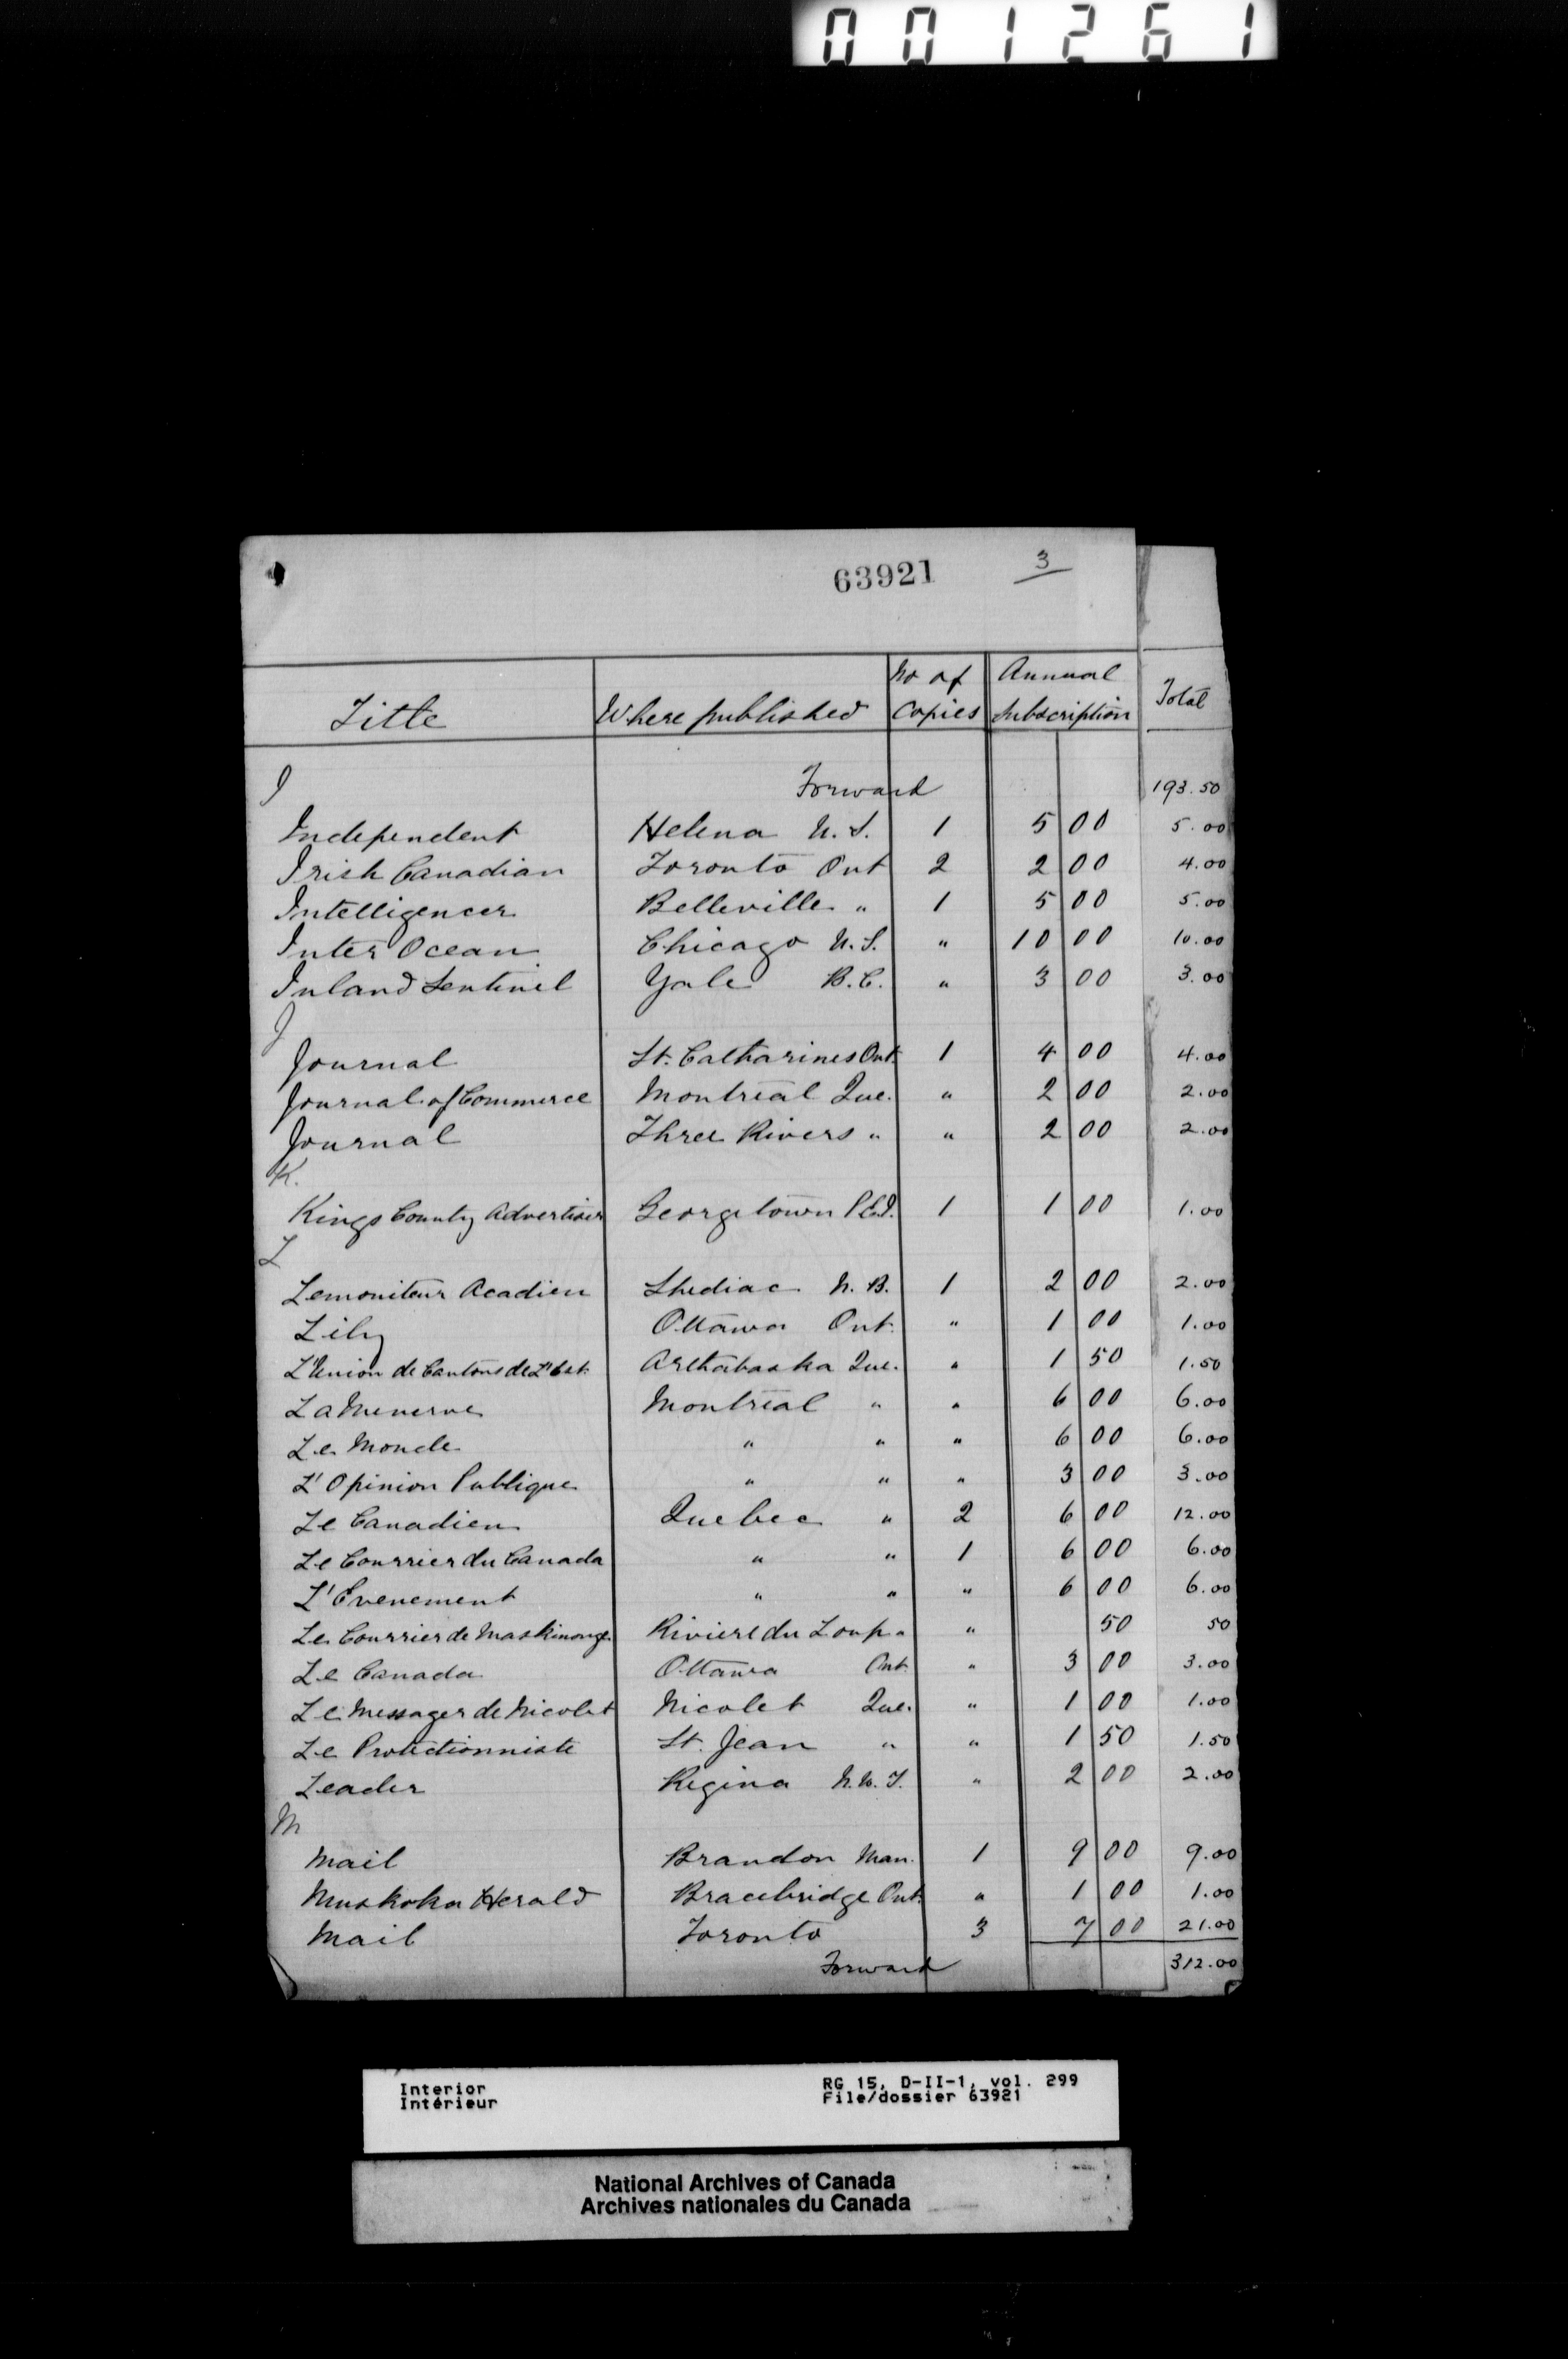 001261
63921 3
Title Where published No of Copies Annual Subscription Total
I Forward 193.50
Independent Helena U.S. 1 5 00 5.00
Irish Canadian Toronto Ont 2 2 00 4.00
Intelligencer Belleville " 1 5 00 5.00
Inter Ocean Chicago U.S. " 10 00 10.00
Inland Sentinel Yale B.C. " 3 00 3.00
J
Journal St. Catharines Ont. 1 4 00 4.00
Journal of Commerce Montreal Que. " 2 00 2.00
Journal Three Rivers " " 2 00 2.00
K.
Kings County Advertiser Georgetown P.E.I. 1 1 00 1.00
L
Lemoniteur Acadien Shediac N.B. 1 2 00 2.00
Lily Ottawa Ont. " 1 00 1.00
L'Union de Cantons de L'Est. Arthabaska Que. " 1 50 1.50
La Menerve Montreal " " 6 00 6.00
Le Monde " " " 6 00 6.00
L'Opinion Publique " " " 3 00 3.00
Le Canadien Quebec " 2 6 00 12.00
Le Courrier du Canada " " 1 6 00 6.00
L'Evenement " " " 6 00 6.00
Le Courrier de Maskinonge Riviere du Loup " " 50 50
Le Canada Ottawa Ont. " 3 00 3.00
Le Messager de Nicolet Nicolet Que. " 1 00 1.00
Le Protectionniste St. Jean " " 1 50 1.50
Leader Regina N.W.T. " 2 00 2.00
M
Mail Brandon Man. 1 9 00 9.00
Muskoka Herald Bracebridge Ont. " 1 00 1.00
Mail Toronto 3 7 00 21.00
Forward 312.00
Interior RG 15, D-II-1, vol. 299
Intérieur File/dossier 63921
National Archives of Canada
Archives nationales du Canada